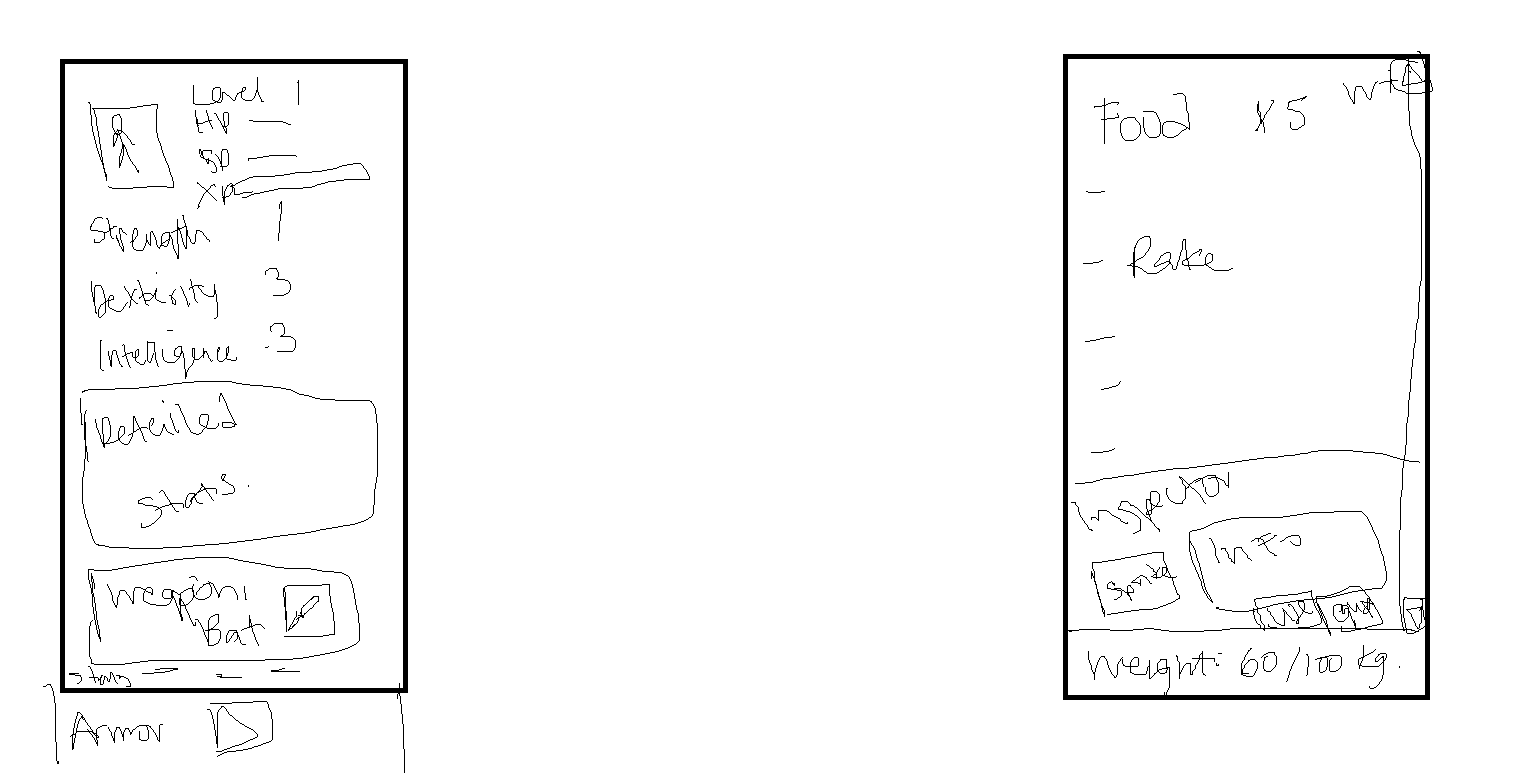 Level 1
HP
SP
XP
Strength 1
Dexterity 3
Intelligence 3
Detailed
Stats.
Weapon:
Bat
Stats
Armor
Food x5 wt
Rake
Inspector
Info
Sprite
use equip
Weight: 60/100 kg.